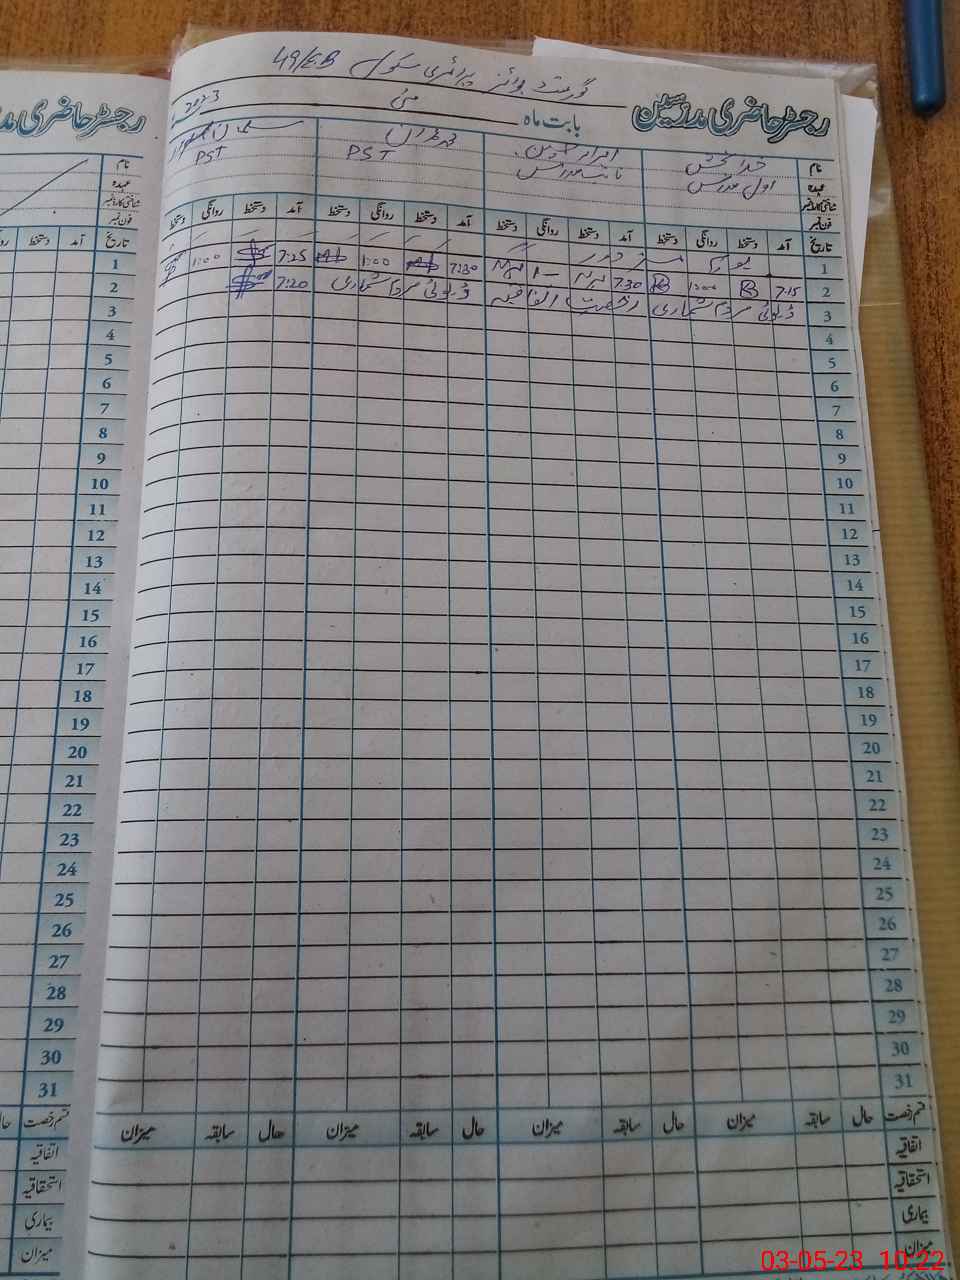 گورنمنٹ بوائز پرائمری سکول 49/EB
رجسٹر حاضری مدرسین
بابت ماہ مئی 2023
نام خدا بخش
عہدہ اول مدرس نائب مدرس PST PST
شناختی کارڈ نمبر
فون نمبر
تاریخ آمد دستخط روانگی دستخط آمد دستخط روانگی دستخط آمد دستخط روانگی دستخط آمد دستخط روانگی دستخط
1 یوم مزدور
2 7:15 1:00 7:30 7:30 1:00 7:25 1:00
3 ڈیوٹی مردم شماری رخصت اتفاقیہ ڈیوٹی مردم شماری 7:20
4
5
6
7
8
9
10
11
12
13
14
15
16
17
18
19
20
21
22
23
24
25
26
27
28
29
30
31
قسم رخصت حال سابقہ میزان حال سابقہ میزان حال سابقہ میزان حال سابقہ میزان
اتفاقیہ
استحقاقیہ
بیماری
میزان
رجسٹر حاضری مد
نام
عہدہ
شناختی کارڈ نمبر
فون نمبر
تاریخ آمد دستخط
1
2
3
4
5
6
7
8
9
10
11
12
13
14
15
16
17
18
19
20
21
22
23
24
25
26
27
28
29
30
31
قسم رخصت حال
اتفاقیہ
استحقاقیہ
بیماری
میزان
03-05-23 10:22